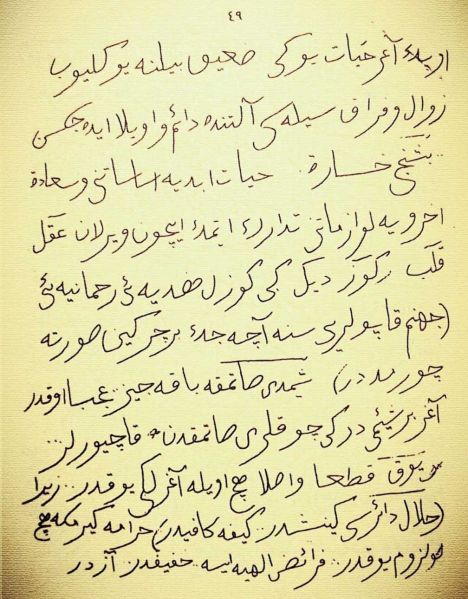 ٤٩
اویله آغر حیات یوکی ضعیف بیلنه یوکلیوب
زوال و فراق سیله سی آلتنده دائم واویلا ایده جکسن
بشنجی خسارة حیات ابدیه اساساتی و سعادة
اخرویه لوازماتی تدارك ایتمك ایچون ویریلان عقل
قلب کوز دیل کبی کوزل هدیه ئی رحمانیه ئی
(جهنم قاپولرینی سنه آچه جق بر چرکین صورته
چویرمكدر) شیمدی صاتمقه باقه جغز عجبا اوقدر
آغر بر شیئمی در که چوقلری صاتمقدن قاچیورلر
یوق قطعا و اصلا هیچ اویله آغرلغی یوقدر زیرا
(حلال دائره سی کنیشدر کیفه کافیدر) حرامه کیرمکه هیچ
لزوم یوقدر فرائض الهیه ایسه خفیفدر آزدر